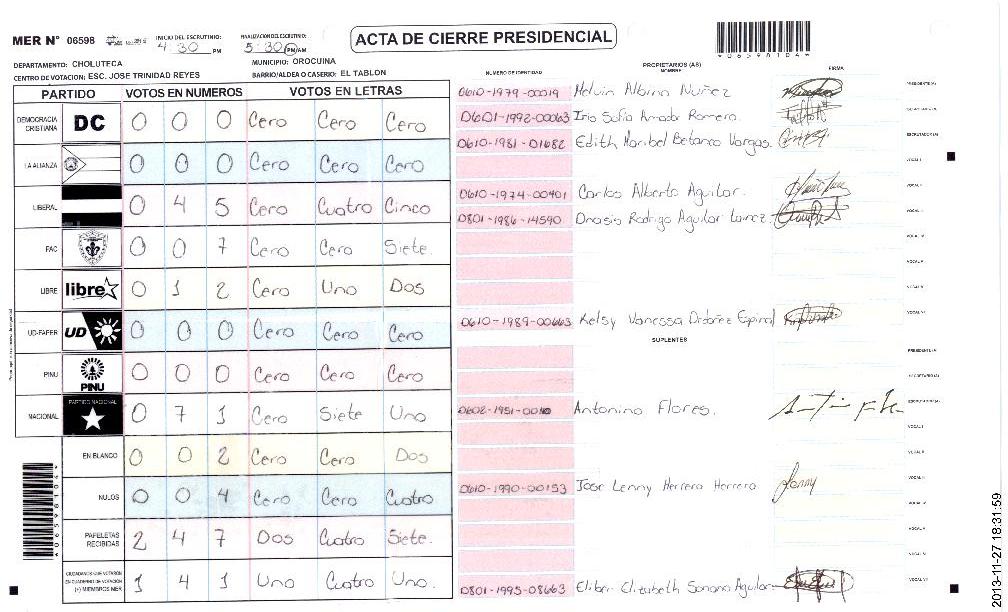 MER Nº 06598
INICIO DEL ESCRUTINIO: 4:30 PM
FINALIZACION DEL ESCRUTINIO: 5:30 PM/AM
ACTA DE CIERRE PRESIDENCIAL
*06598104*
DEPARTAMENTO: CHOLUTECA
MUNICIPIO: OROCUINA
CENTRO DE VOTACION: ESC. JOSE TRINIDAD REYES
BARRIO/ALDEA O CASERIO: EL TABLON
PARTIDO VOTOS EN NUMEROS VOTOS EN LETRAS
DEMOCRACIA CRISTIANA DC 0 0 0 Cero Cero Cero
LA ALIANZA 0 0 0 Cero Cero Cero
LIBERAL 0 4 5 Cero Cuatro Cinco
FAC 0 0 7 Cero Cero Siete.
LIBRE libre 0 1 2 Cero Uno Dos
UD-FAPER UD 0 0 0 Cero Cero Cero
PINU PINU 0 0 0 Cero Cero Cero
NACIONAL PARTIDO NACIONAL 0 7 1 Cero Siete Uno
EN BLANCO 0 0 2 Cero Cero Dos
NULOS 0 0 4 Cero Cero Cuatro
PAPELETAS RECIBIDAS 2 4 7 Dos Cuatro Siete.
CIUDADANOS QUE VOTARON EN CUADERNO DE VOTACION (+) MIEMBROS MER 1 4 1 Uno Cuatro Uno.
*06598104*
NUMERO DE IDENTIDAD
PROPIETARIOS (AS)
NOMBRE
FIRMA
0610-1979-00019 Melvin Albino Nuñez PRESIDENTE(A)
0601-1992-00063 Iris Sofia Amador Romero. SECRETARIO(A)
0610-1981-01682 Edith Maribel Betanco Vargas. ESCRUTADOR(A)
VOCAL I
0610-1974-00401 Carlos Alberto Aguilar. VOCAL II
0801-1986-14590 Onasis Rodrigo Aguilar VOCAL III
VOCAL IV
VOCAL V
0610-1989-00663 Kelsy Vanessa Ordoñez Espinal
SUPLENTES
PRESIDENTE(A)
SECRETARIO(A)
Antonino Flores. ESCRUTADOR(A)
VOCAL I
VOCAL II
0610-1990-00153 Jose Lenny Herrera Herrera Lenny VOCAL III
0801-1995-08663
2013-11-27 18:31:59